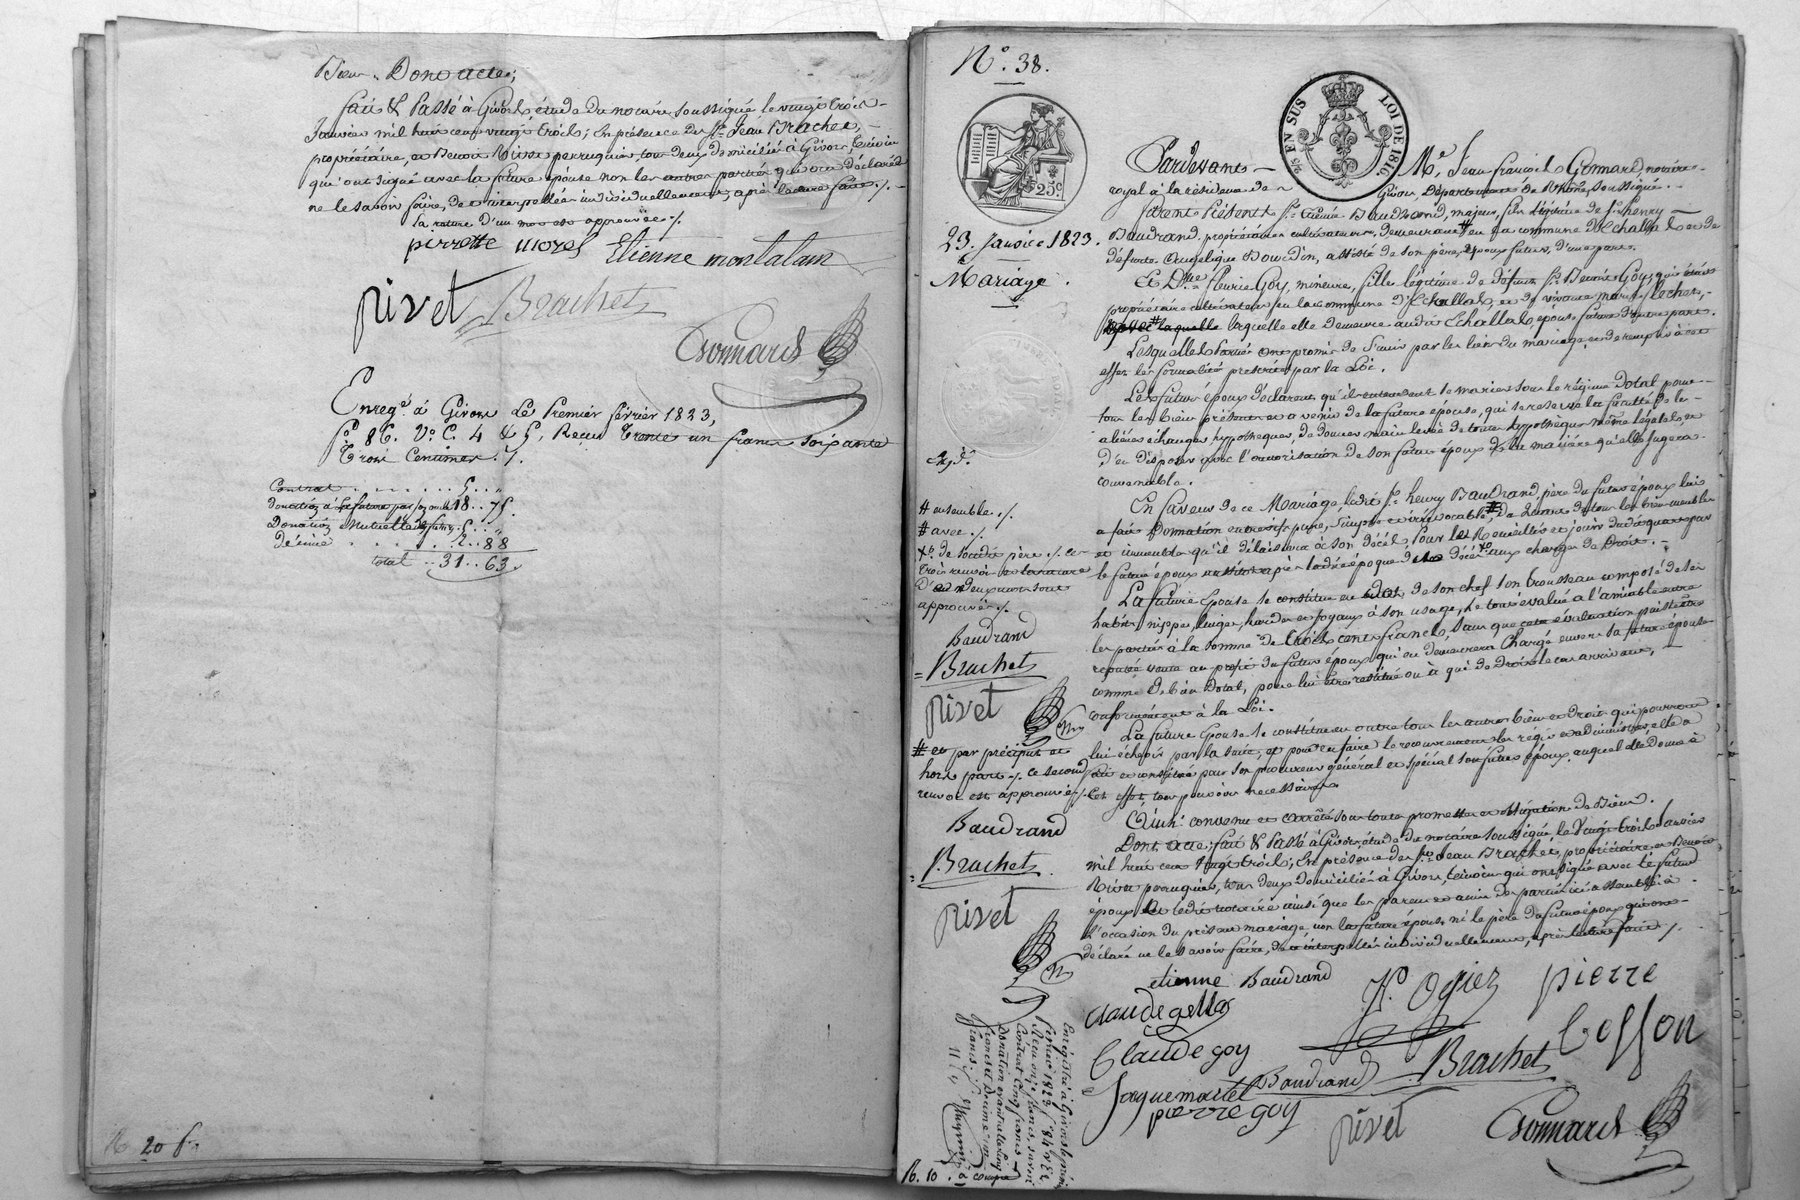 Bien. Dont acte;
fait & Passé à Givors, étude du notaire soussigné, le vingt trois
Janvier mil huit cent vingt trois; En présence des Srs Jean Brachet,
propriétaire, et Benoit Rivet perruquier, tous deux domiciliés à Givors, témoins
qui ont signé avec la future épouse non les autres parties qui ont déclaré
ne le savoir faire, de ce interpellées individuellement, après lecture faite ./.
la rature d'un mot est approuvée ./.
pierrette morel Etienne montalam
rivet Brachet
Gonnard
Enregé. à Givors Le Premier février 1823,
fo. 86. Vo. C. 4 & 5, Reçu Trente un francs soixante
Trois Centimes ./.
Contrat . . . . . . 5 .. "
donation à la future par 18 .. 75.
Donation Mutuelle des futurs 5 .. "
décime . . . . 2 .. 88
total .. 31 .. 63
Ro. 20 f.
No. 38.
25 EN SUS LOI DE 1816
25c
23. Janvier 1823.
Mariage.
Pardevant Me. Jean françois Gonnard, notaire
royal à la résidence de Givors, Département du Rhône, soussigné.
furent Présents Sr. Etienne Baudrand, majeur, fils légitime de Sr. henry
Baudrand, propriétaire cultivateur, demeurant # en la commune d'Echallas et de
défunte Angélique Bourdin, assisté de son père, époux futur, d'une part.
Et Dlle. fleurie Goy, mineure, fille légitime de défunt Sr. Benoit Goy, qui était
propriétaire cultivateur en la commune d'Echallas, et de vivante marie flechet,
# laquelle elle demeure audit Echallas, épouse future d'autre part.
Lesquelles Parties ont promis de s'unir par les liens du mariage, et de remplir à cet
effet les formalités prescrites par la Loi.
Les futurs époux déclarent qu'ils entendent se marier sous le régime Dotal pour
tous les biens présents et à venir de la future épouse, qui se reserve la faculté de les
aliéner, échanger, hypothéquer, de donner main levée de toutes hypothèques même légales, et
d'en disposer avec l'autorisation de son futur époux de la manière qu'elle jugera
convenable.
En faveur de ce Mariage, ledit Sr. henry Baudrand, père du futur époux lui
a fait Donation entre vifs, pure, simple et irrévocable, # du quart de tous les biens meubles
et immeubles qu'il délaissera à son décès, Pour les Recueillir et jouir dudit quart par
le futur époux à ladite époque du décès aux charges de Droit.
La future épouse se constitue en dot de son chef son trousseau composé de ses
habits, nippes, linges, hardes et joyaux à son usage, le tout évalué à l'amiable entre
les parties à la somme de trois cent francs, sans que cette évaluation puisse être
reputée vente au profit du futur époux qui en demeurera Chargé envers sa future épouse
comme de bien Dotal, pour lui être restitué ou à qui de Droit le cas arrivant,
conformément à la Loi.
La future épouse se constitue en outre tous les autres biens et Droits qui pourront
lui échoir par la suite, et pour en faire le recouvrement, les régir et administrer elle a
fait et constitué pour son procureur général et spécial son futur époux, auquel elle Donne à
cet effet tous pouvoirs nécessaires.
Ainsi convenu et arrêté sous toute promesse et obligation de Bien.
Dont acte; fait & Passé à Givors, étude du notaire soussigné, le Vingt trois Janvier
mil huit cent vingt trois; En présence des Srs. Jean Brachet, propriétaire, et Benoit
Rivet perruquier, tous deux domiciliés à Givors, témoins qui ont signé avec le futur
époux et ledit notaire ainsi que les parents et amis des parties ici assemblés à
l'occasion du présent mariage, non la future épouse, ni le père du futur époux qui ont
déclaré ne le savoir faire, de ce interpellés individuellement, après lecture faite ./.
etienne Baudrand
Claude gellas
Claude goy
Jaquemontel
pierre goy
Baudrand
Ogier
pierre besson
Brachet
rivet
Gonnard
Expé.
# ensemble ./.
# avec ./.
de sondit père ./. ces
trois renvois et la rature
d'un deux mots sont
approuvés ./.
Baudrand
Brachet
rivet
# et par préciput et
hors part ./. ce second
renvoi est approuvé ./.
Baudrand
Brachet
rivet
Enregistré à Givors le premier
février 1823. fo. 84
Reçu onze francs, savoir
Contrat Cinq francs
Donation eventuelle Cinq
francs et Décime un
franc.
Ro. 10.